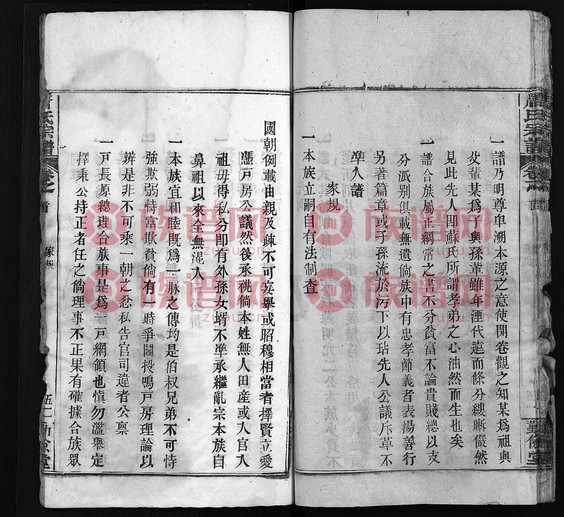 一譜乃明尊卑溯本源之意使開卷觀之知某爲祖與
父輩某爲與孫輩雖年湮代遠而條分縷晰儼然
見此先人即蘇氏所謂孝弟之心油然而生也矣
一譜合族屬正綱常之書不分貧富不論貴賤總以支
分派別俱載無遺倘族中有忠孝節義者表揚善行
另著篇章或子孫流於污下以玷先人公議斥革不
準入譜
家規
一本族立嗣自有法制查
國朝例載由親及疎不可妄舉或昭穆相當者擇賢立愛
憑戸房公議然後承祧倘本姓無人田産或大官人
祖毋得私分即有外孫女婿不準承繼亂宗本族自
鼻祖以來全無混入
一本族宜和睦既爲一脈之傳均是伯叔兄弟不可恃
強欺弱恃富欺貧倘有一時爭鬪投鳴戸房理論以
辨是非不可乘一朝之忿私告官司違者公禀
一戸長原總理合族事是爲一戸綱領也愼勿濫舉定
擇秉公持正者任之倘理事不正果有確據合族眾
氏宗譜
卷之首
家規
五二
勤儉堂
氏宗譜
首
勤儉堂
族谱网
族谱网
族谱网
族谱网